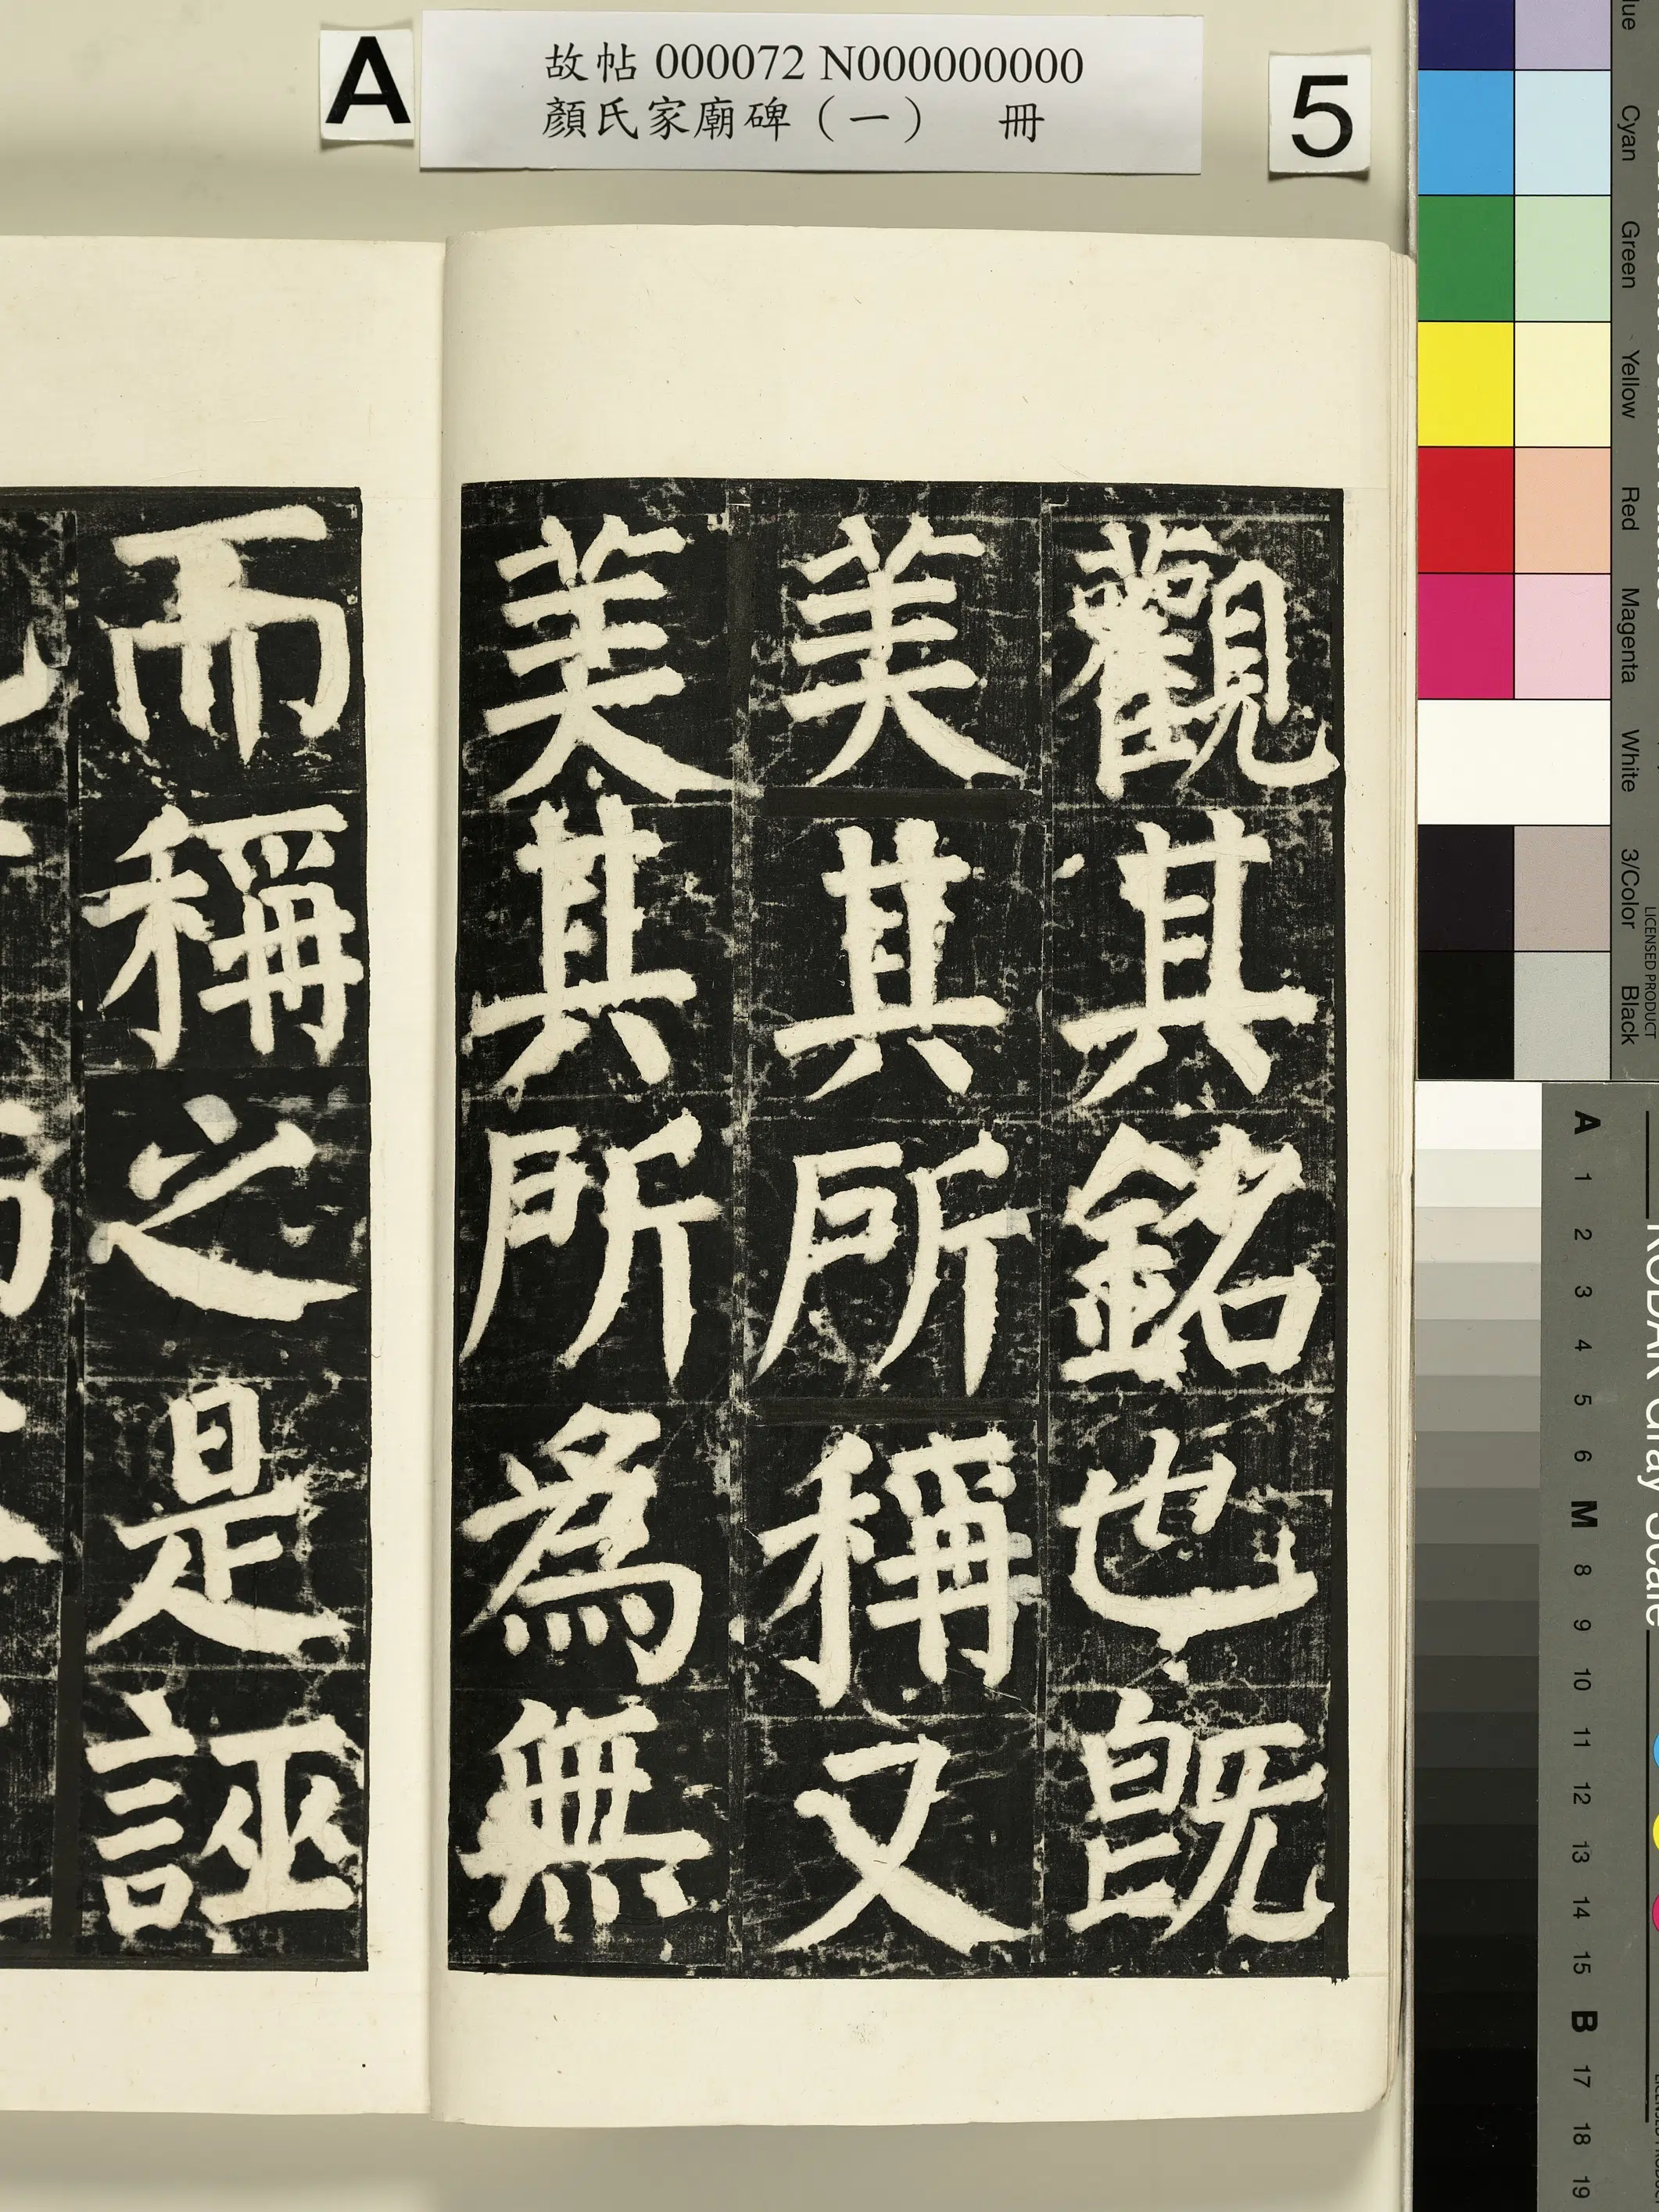 A
故帖 000072 N000000000
顏氏家廟碑（一） 冊
5
觀其銘也既
美其所稱又
美其所為無
而稱之是誣
Cyan
Green
Yellow
Red
Magenta
White
3/Color
Black
LICENSED PRODUCT
KODAK Gray Scale
A
1
2
3
4
5
6
M
8
9
10
11
12
13
14
15
B
17
18
19